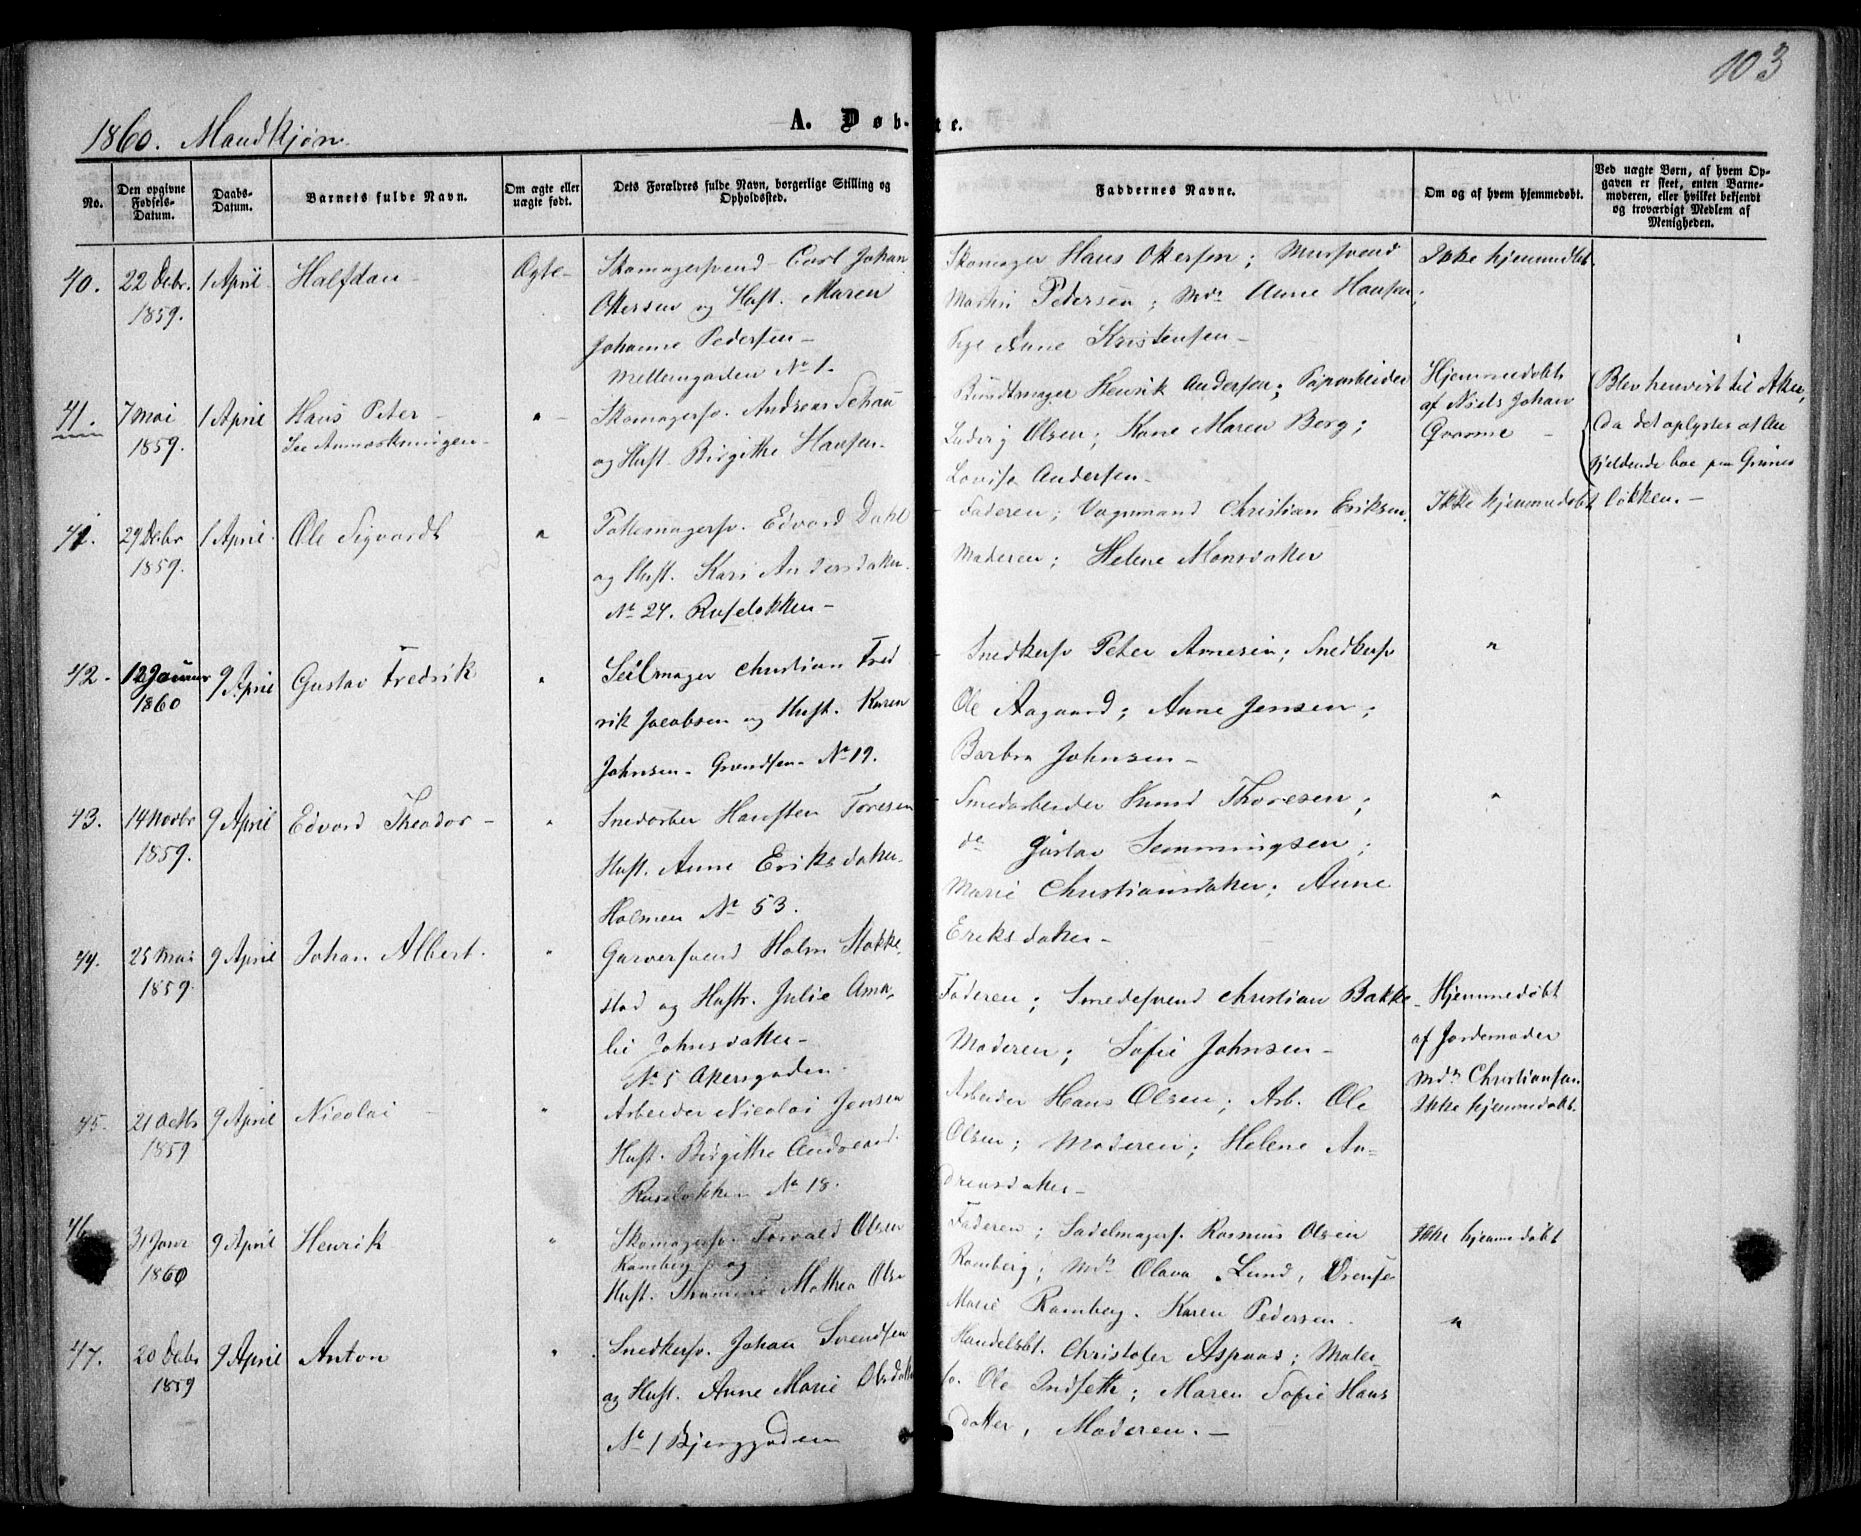 103
1860. Mandkjøn.
A. Døbte.
No.
Den opgivne Fødsels-Datum.
Daabs-Datum.
Barnets fulde Navn.
Om ægte eller uægte født.
Dets Forældres fulde Navn, borgerlige Stilling og Opholdssted.
Faddernes Navne.
Om og af hvem hjemmedøbt.
Ved uægte Børn, af hvem Opgaven er skeet, enten Barnemoderen, eller hvilket bekjendt og troværdigt Medlem af Menigheden.
40.
22 Debr.
1859.
1 April
Halfdan
Ægte
Skomagersvend Carl Johan
Ottersen og Hust. Maren
Johanne Pedersen
Mellemgaden No 1.
Skomager Hans Ottersen; Mursvend
Martin Pedersen; Md. Anne Hansen;
Pige Anne Kristensen
Ikke hjemmedøbt.
41.
7 Mai
1859.
1 April
Hans Peter
See Anmærkningen
"
Skomagersv. Andreas
og Hust. Birgitte Hansen
Bundtmager Henrik Andersen;
Ludvig Olsen; Kone Maren Berg;
Lovise Andersen
Hjemmedøbt
af Niels Johan
Blev henvist til Aker,
da det oplystes at
bor paa Grüners
løkken.
41.
29 Debr
1859.
1 April
Ole Sigvardt
"
Pottemagersv. Edvard Dahl
og Hust. Kari Andersdatter
No 24. Ruseløkken
Faderen; Vognmand Christian Eriksen.
Moderen; Helene Monsdatter
Ikke hjemmedøbt
42.
12 Januar
1860
9 April
Gustav Fredrik
"
Seilmager Christian Fred
rik Jacobsen og Hust. Karen
Johnsen. Grændsen No 19.
Snedkersv Peter Arnesen; Snedkersv
Ole Aagaard; Anne Jensen;
Barbra Johnsen
"
43.
14 Novbr
1859.
9 April
Edvard Theodor
"
Toresen
Hust. Anne Eriksdatter
Holmen No 53.
Smedarbeider Knud Thoresen;
do Gustav Semmingsen;
Marie Christiansdatter; Anne
Eriksdatter
"
44.
25 Mai
1859.
9 April
Johan Albert.
"
Garversvend Holm Stokke
stad og Hustr. Julie Ama,
lie Johnsdatter
No 5 Akersgaden.
Faderen; Smedesvend Christian Bakke
Moderen; Sofie Johnsen
Hjemmedøbt
af Jordemoder
Md. Christiansen
45.
21 Octbr
1859
9 April
Nicolai
"
Arbeider Nicolai Jensen
Hust. Birgitte Andreasd.
Ruseløkken No 18.
Arbeider Hans Olsen; Arb. Ole
Olsen; Moderen; Helene An=
dreasdatter
Ikke hjemmedøbt.
46.
31 Janr
1860
9 April
Henrik
"
Skomagersv. Torvald Olsen
Ramberg og
Hust. Mathea Olsn
Faderen; Sadelmagers. Rasmus Olsen
Ramberg; Md. Olava Lund,
Marie Ramberg. Karen Pedersen.
Ikke hjemmedøbt
47.
20 Debr
1859
9 April
Anton
"
Snedkersv. Johan Svendsen
og Hust. Anne Marie Olsdatt
No 1 Bjerggaden
Handelsbt. Christofer Aspaas; Maler
sv. Ole Indseth; Maren Sofie Hans
datter, Moderen.
"